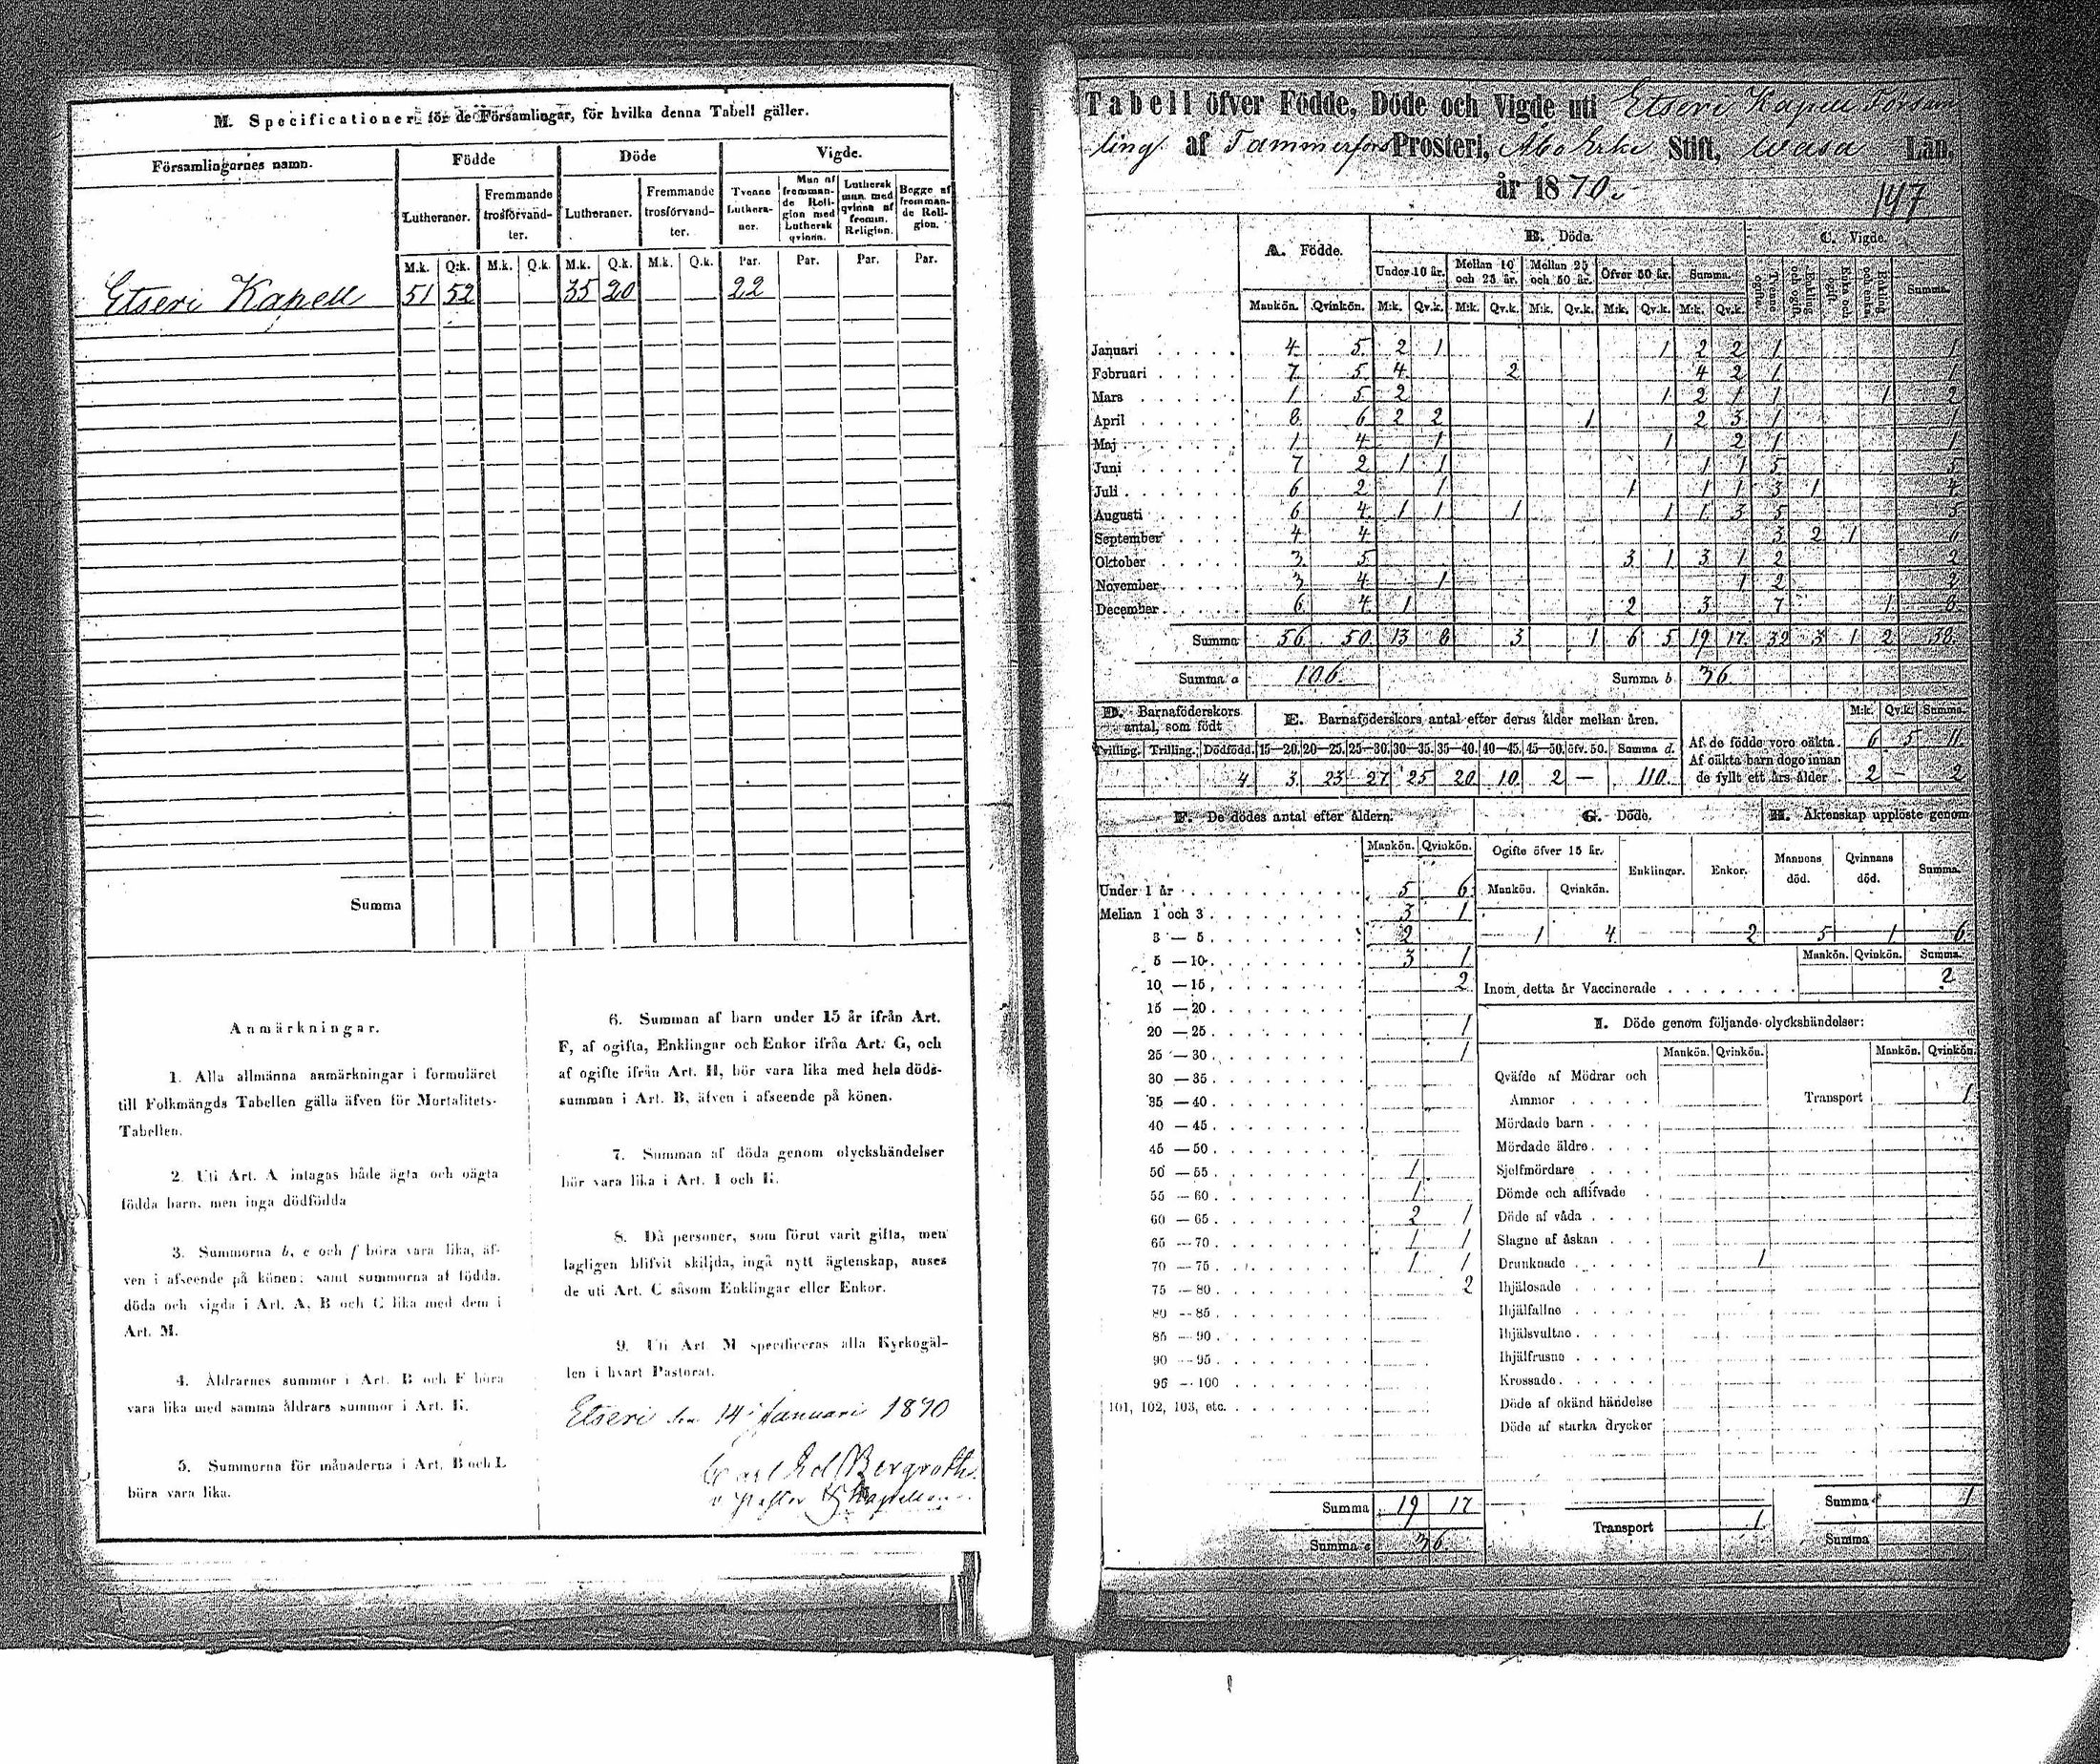 M. Specificationer för de Församlingar, för hvilka denna Tabell gäller.
Församlingarnes namn. Födde Döde Vigde.
Lutheraner. Fremmande trosförvandter. Lutheraner. Fremmande trosförvandter. Tvenne Lutheraner. Man af fremmande Religion med Luthersk qvinna. Luthersk man med qvinna af fremm. Religion. Begge af fremmande Religion.
M.k. Q.k. M.k. Q.k. M.k. Q.k. M.k. Q.k. Par. Par. Par. Par.
Etseri Kapell 51 52 35 20 22
Summa
Anmärkningar.
1. Alla allmänna anmärkningar i formuläret
till Folkmängds Tabellen gälla äfven för Mortalitets-
Tabellen.
2. Uti Art. A intagas både ägta och oägta
födda barn, men inga dödfödda
3. Summorna b, e och f böra vara lika, äf-
ven i afseende på könen; samt summorna af födda,
döda och vigda i Art. A, B och C lika med dem i
Art. M.
4. Åldrarnes summor i Art. B och F böra
vara lika med samma åldrars summor i Art. K.
5. Summorna för månaderna i Art. B och L
böra vara lika.
6. Summan af barn under 15 år ifrån Art.
F, af ogifta, Enklingar och Enkor ifrån Art. G, och
af ogifte ifrån Art. H, bör vara lika med hela döds-
summan i Art. B, äfven i afseende på könen.
7. Summan af döda genom olyckshändelser
bör vara lika i Art. I och K.
8. Då personer, som förut varit gifta, men
lagligen blifvit skiljda, ingå nytt ägtenskap, anses
de uti Art. C såsom Enklingar eller Enkor.
9. Uti Art. M specificeras alla Kyrkogäl-
len i hvart Pastorat.
Etseri den 14 Januari 1870
Carl Ed Bergroth.
Tabell öfver Födde, Döde och Vigde uti Etseri Kapell Försam
ling af Tammerfors Prosteri, Åbo Erke Stift, Wasa Län,
år 1870.
147
A. Födde. B. Döde. C. Vigde.
Under 10 år. Mellan 10 och 25 år. Mellan 25 och 50 år. Öfver 50 år. Summa. Tvenne ogifte. Enkling och ogift. Enka och ogift. Enkling och enka. Summa.
Mankön. Qvinkön. M:k. Qv.k. M:k. Qv.k. M:k. Qv.k. M:k. Qv.k. M:k. Qv.k.
Januari 4 5 2 1 1 2 2 1 1
Februari 7 5 4 2 4 2 1 1
Mars 1 5 2 1 2 1 1 1 2
April 8 6 2 2 1 2 3 1 1
Maj 1 4 1 1 2 1 1
Juni 7 2 1 1 1 1 5 5
Juli 6 2 1 1 1 1 3 1 4
Augusti 6 4 1 1 1 1 1 3 5 5
September 4 4 3 2 1 6
Oktober 3 5 3 1 3 1 2 2
November 3 4 1 1 2 2
December 6 4 1 2 3 7 1 8
Summa 56 50 13 8 3 1 6 5 19 17 32 3 1 2 38
Summa a 106 Summa b 36
D. Barnaföderskors antal, som födt
E. Barnaföderskors antal efter deras ålder mellan åren.
M:k. Qv.k. Summa.
Tvilling. Trilling. Dödfödd. 15—20. 20—25. 25—30. 30—35. 35—40. 40—45. 45—50. öfv. 50. Summa d.
4 3 23 27 25 20 10 2 — 110
Af de födde voro oäkta 6 5 11
Af oäkta barn dogo innan de fyllt ett års ålder 2 — 2
F. De dödes antal efter åldern.
Mankön. Qvinkön.
Under 1 år 5 6
Mellan 1 och 3 3 1
3 — 5 2
5 — 10 3 1
10 — 15 2
15 — 20
20 — 25 1
25 — 30 1
30 — 35
35 — 40
40 — 45
45 — 50
50 — 55 1
55 — 60 1
60 — 65 2 1
65 — 70 1 1
70 — 75 1 1
75 — 80 2
80 — 85
85 — 90
90 — 95
95 — 100
101, 102, 103, etc.
Summa 19 17
Summa e 36
G. Döde.
Ogifte öfver 15 år. Enklingar. Enkor.
Mankön. Qvinkön.
1 4 2
H. Äktenskap upplöste genom
Mannens död. Qvinnans död. Summa.
5 1 6
Mankön. Qvinkön. Summa.
Inom detta år Vaccinerade 2
I. Döde genom följande olyckshändelser:
Mankön. Qvinkön. Mankön. Qvinkön.
Qväfde af Mödrar och
Ammor Transport 1
Mördade barn
Mördade äldre
Sjelfmördare
Dömde och aflifvade
Döde af våda
Slagne af åskan
Drunknade 1
Ihjälosade
Ihjälfallne
Ihjälsvultne
Ihjälfrusne
Krossade
Döde af okänd händelse
Döde af starka drycker
Summa f 1
Transport 1
Summa